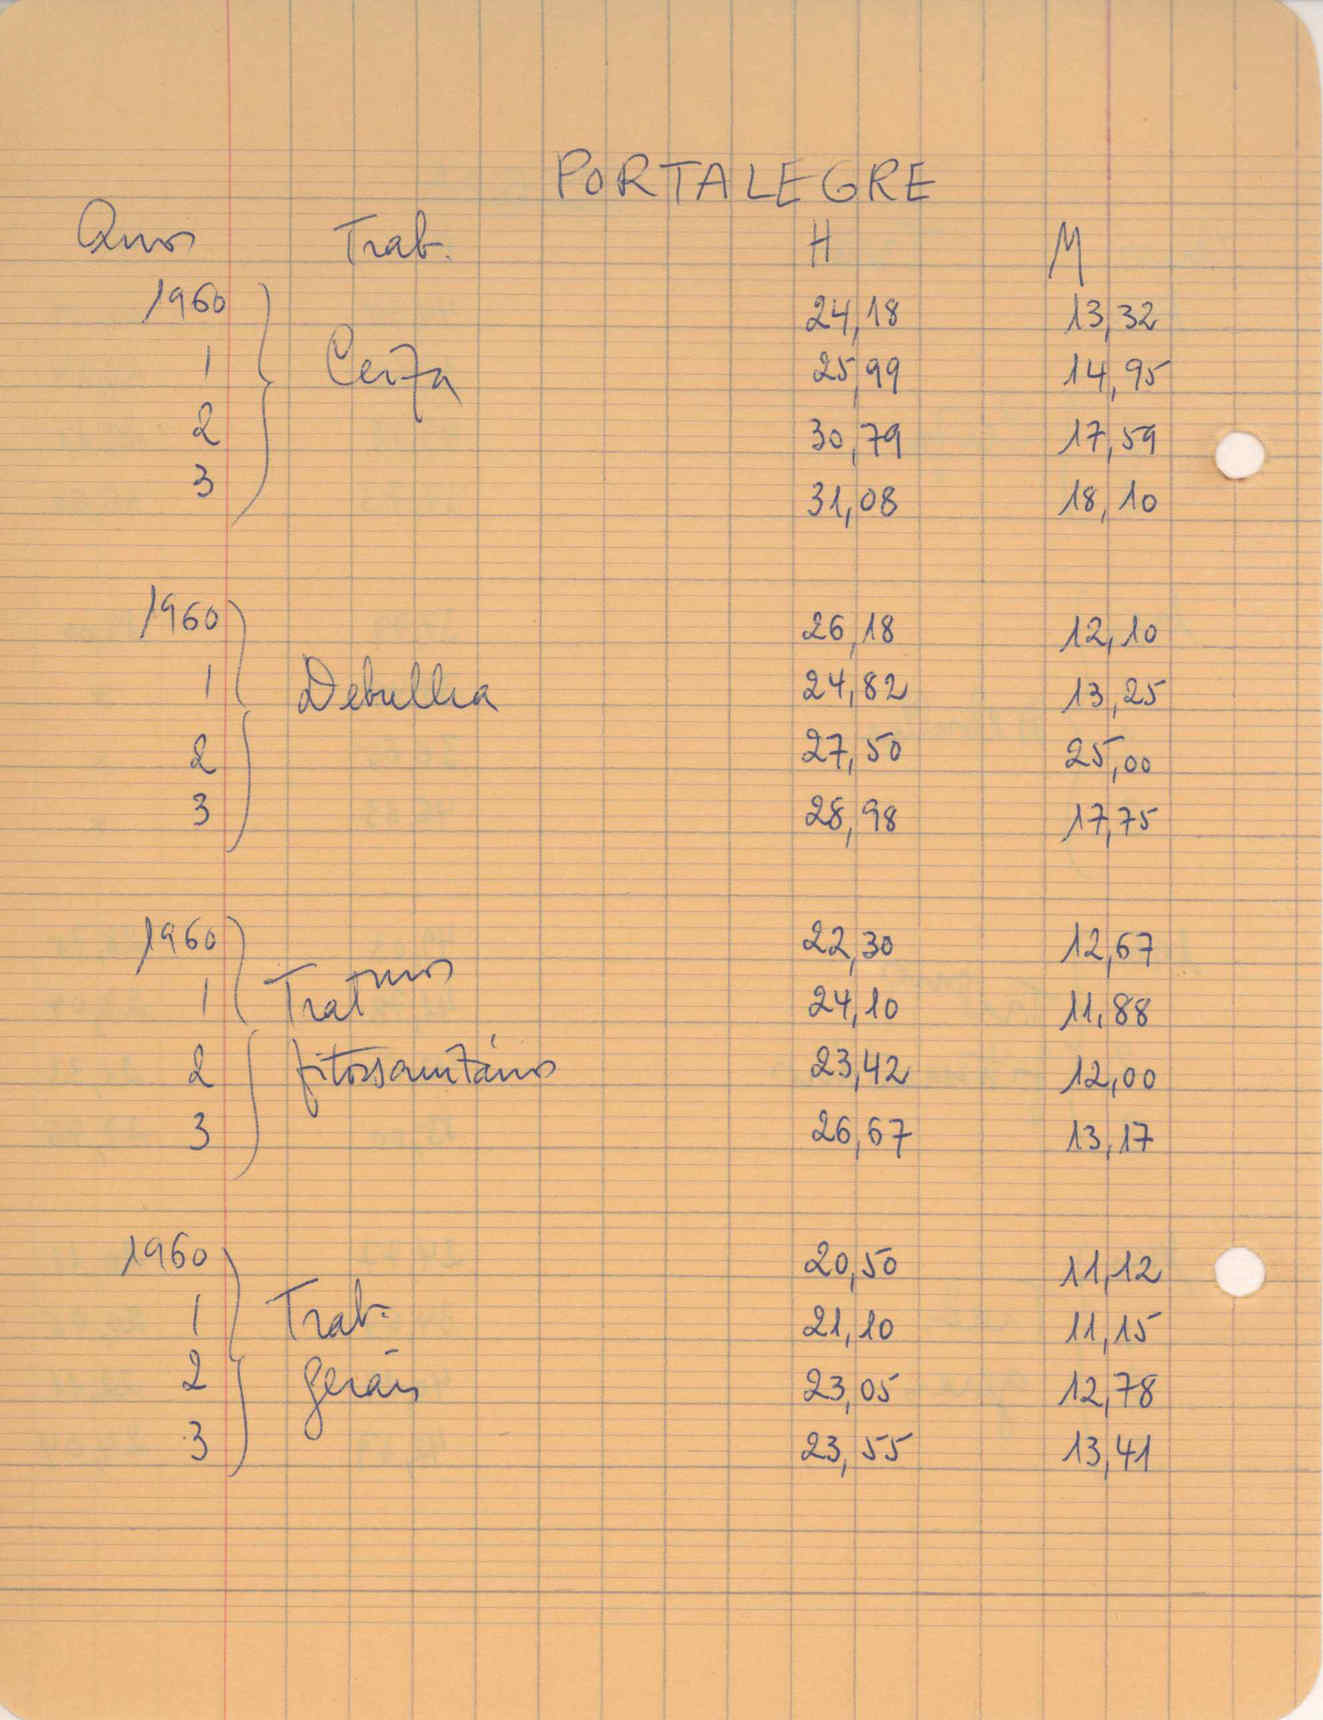 PORTALEGRE
Anos Trab. H M
1960 24,18 13,32
1 Ceifa 25,99 14,95
2 30,79 17,59
3 31,08 18,10
1960 26,18 12,10
1 Debulha 24,82 13,25
2 27,50 25,00
3 28,98 17,75
1960 22,30 12,67
1 Tratmos 24,10 11,88
2 fitossanitários 23,42 12,00
3 26,67 13,17
1960 20,50 11,12
1 Trab. 21,10 11,15
2 gerais 23,05 12,78
3 23,55 13,41